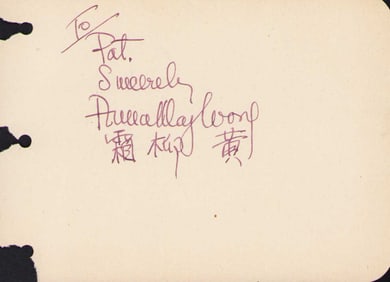 To
Pat.
Sincerely
Anna May Wong
霜 柳 黃